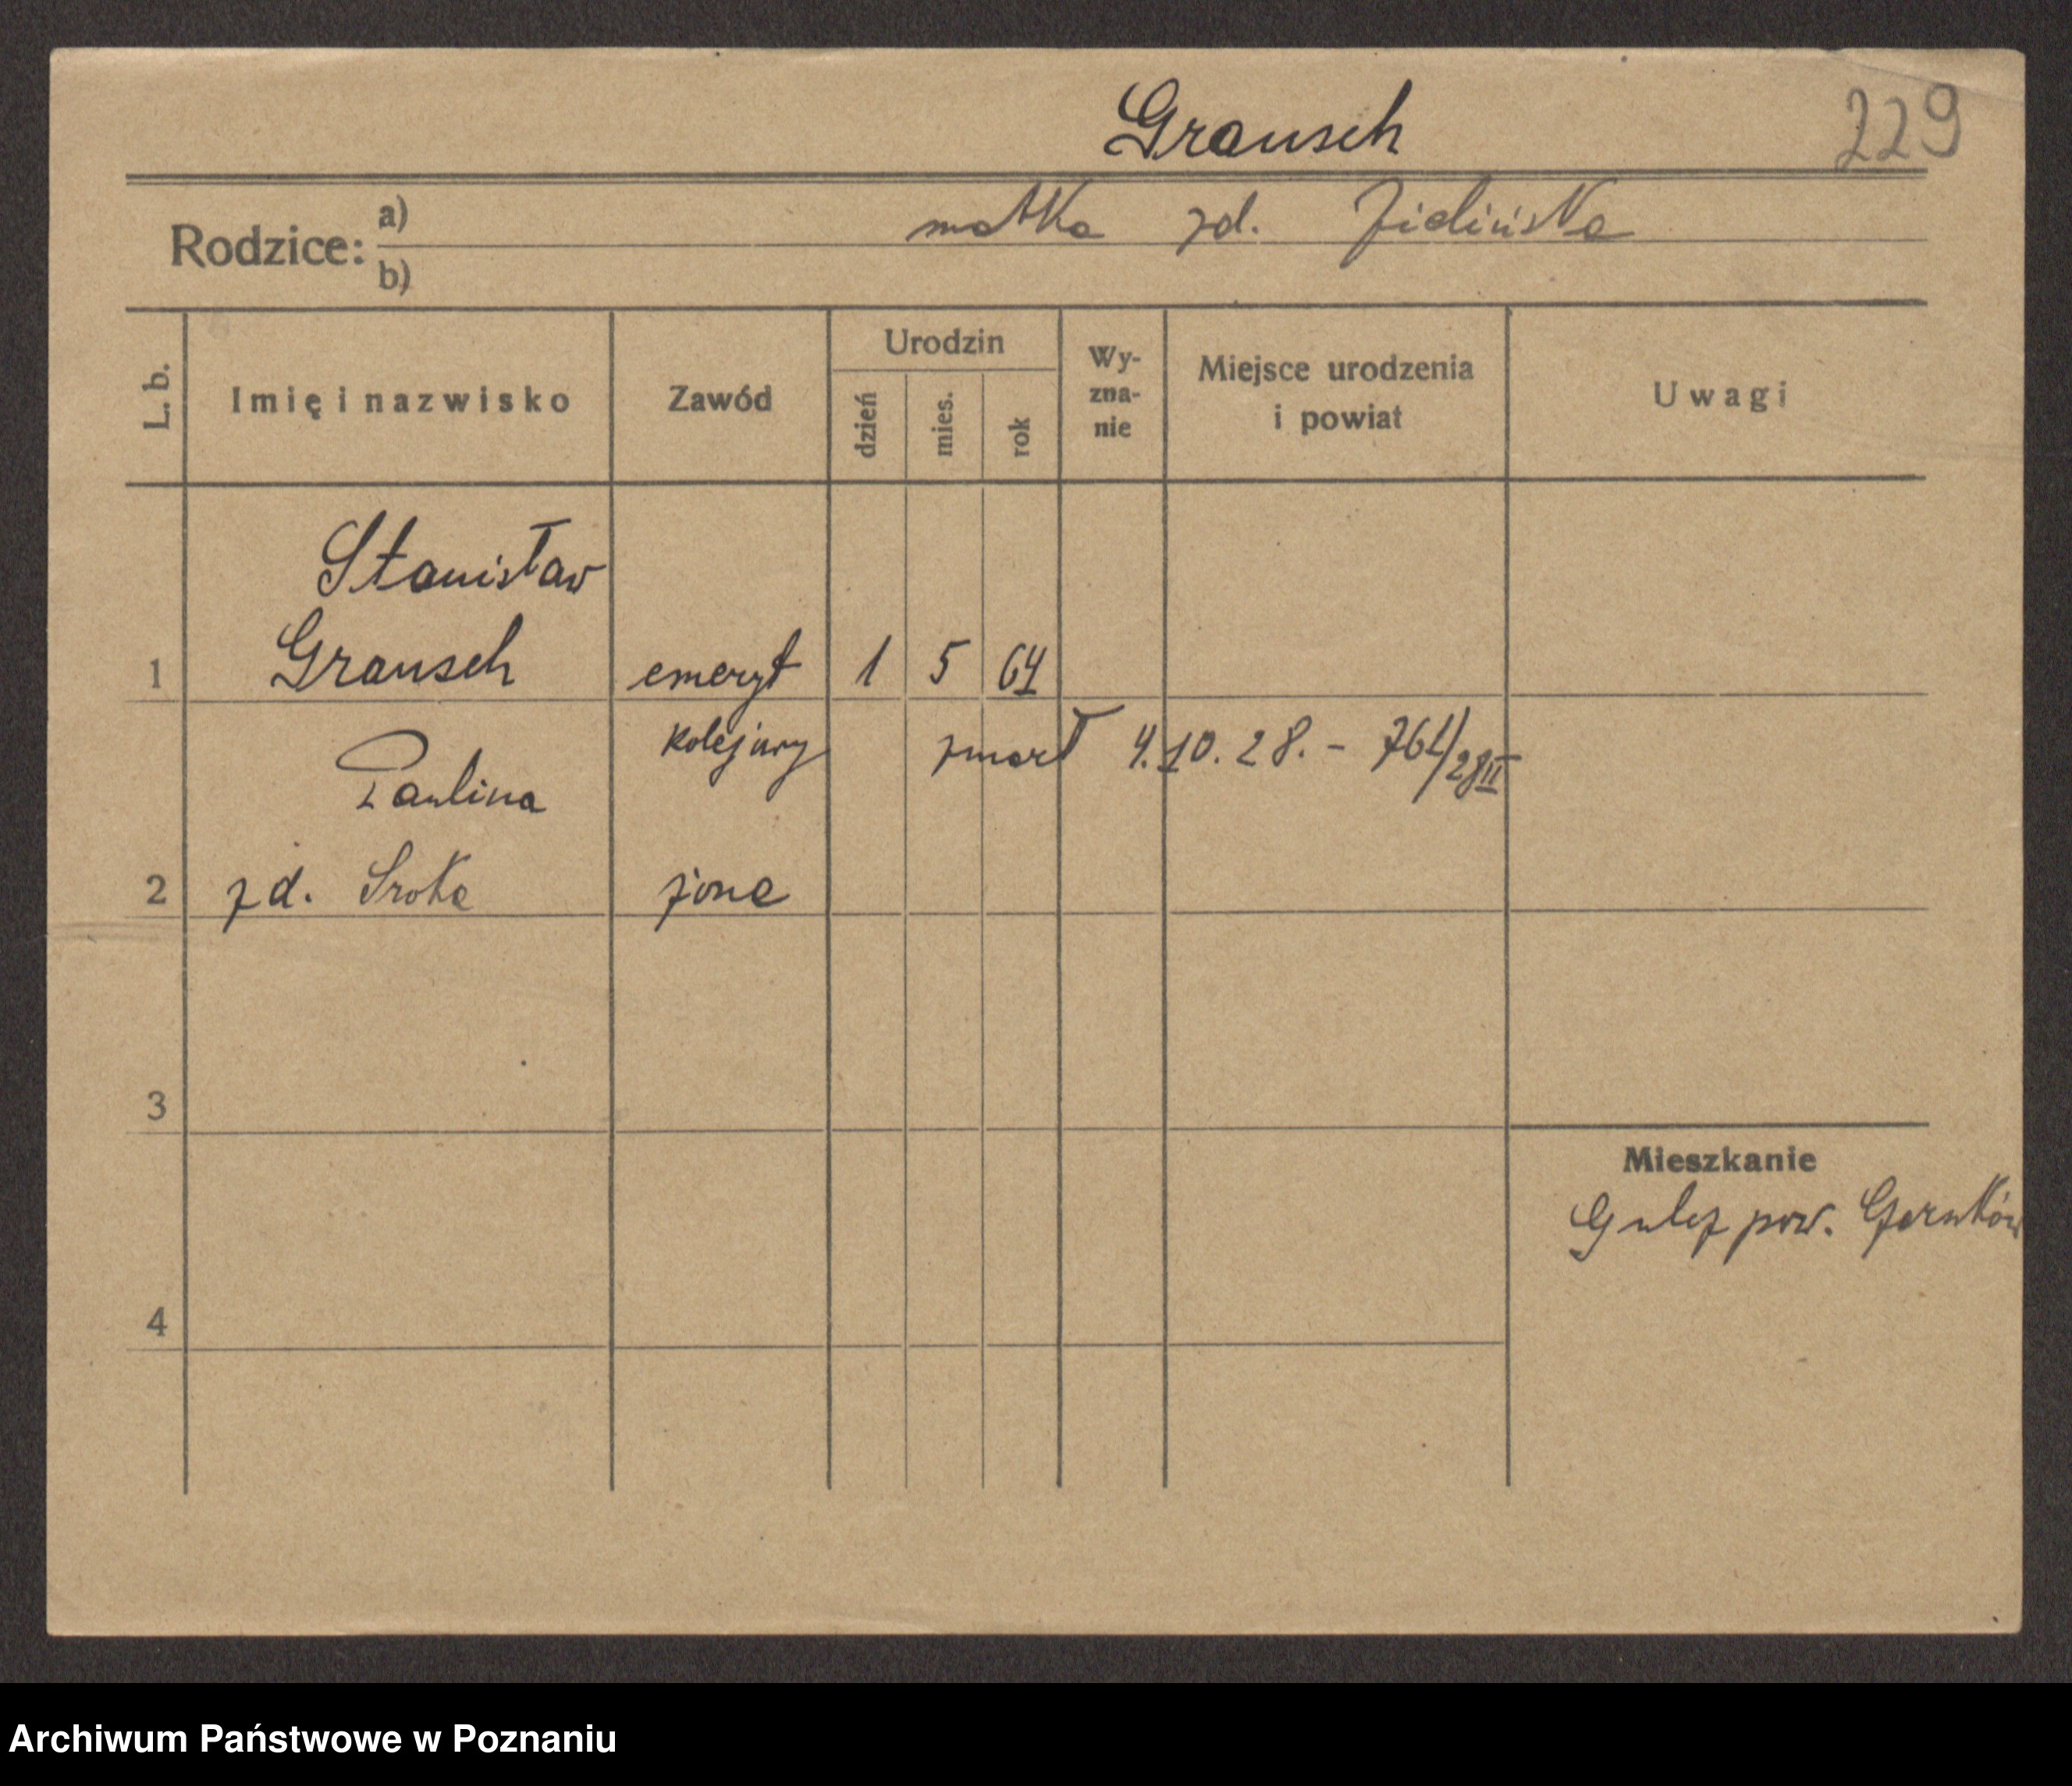 Grausch
229
Rodzice: a) matka zd. Zielińska
b)
L. b.
Imię i nazwisko
Zawód
Urodzin
dzień
mies.
rok
Wy-
zna-
nie
Miejsce urodzenia
i powiat
Uwagi
Stanisław
1 Grausch emeryt 1 5 64
kolejowy zmarł 4.10.28. - 761/28II
Paulina
2 zd. Sroka żona
3
Mieszkanie
Gulcz pow. Czarnków
4
Archiwum Państwowe w Poznaniu